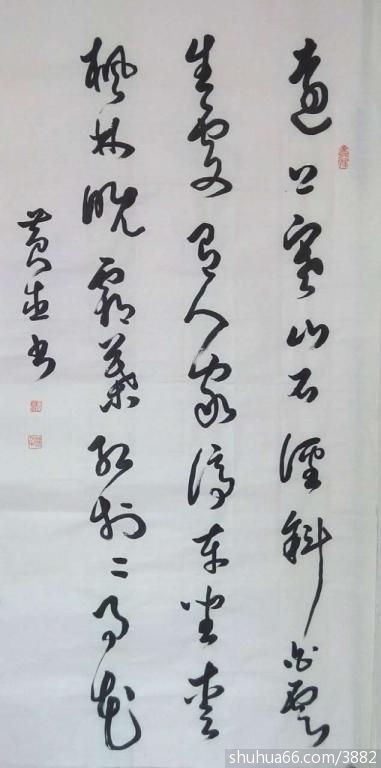 遠上寒山石徑斜白雲
生處有人家停車坐愛
楓林晚霜葉紅於二月花
黄书
shuhua66.com/3882